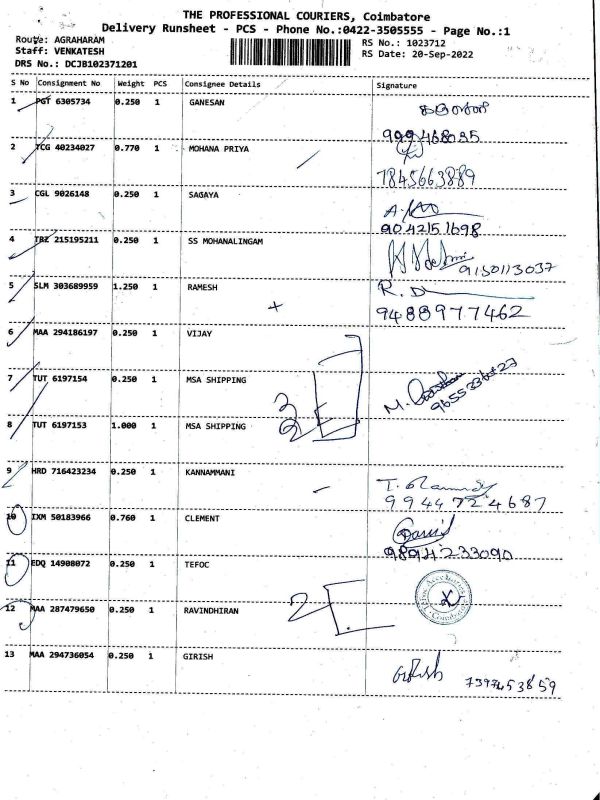 THE PROFESSIONAL COURIERS, Coimbatore
Delivery Runsheet - PCS - Phone No.:0422-3505555 - Page No.:1
Route: AGRAHARAM
RS No.: 1023712
Staff: VENKATESH
RS Date: 20-Sep-2022
DRS No.: DCJB102371201
S No Consignment No Weight PCS Consignee Details Signature
1 PGT 6305734 0.250 1 GANESAN
2 TCG 40234027 0.770 1 MOHANA PRIYA
7845663889
3 CGL 9026148 0.250 1 SAGAYA
9042151698
4 TRZ 215195211 0.250 1 SS MOHANALINGAM
9150113037
5 SLM 303689959 1.250 1 RAMESH R.D
9488977462
6 MAA 294186197 0.250 1 VIJAY
7 TUT 6197154 0.250 1 MSA SHIPPING
8 TUT 6197153 1.000 1 MSA SHIPPING
9 HRD 716423234 0.250 1 KANNAMMANI
9944724687
10 IXM 50183966 0.760 1 CLEMENT
9894233090
11 EDQ 14908072 0.250 1 TEFOC
12 MAA 287479650 0.250 1 RAVINDHIRAN
13 MAA 294736054 0.250 1 GIRISH Girish 7397453859